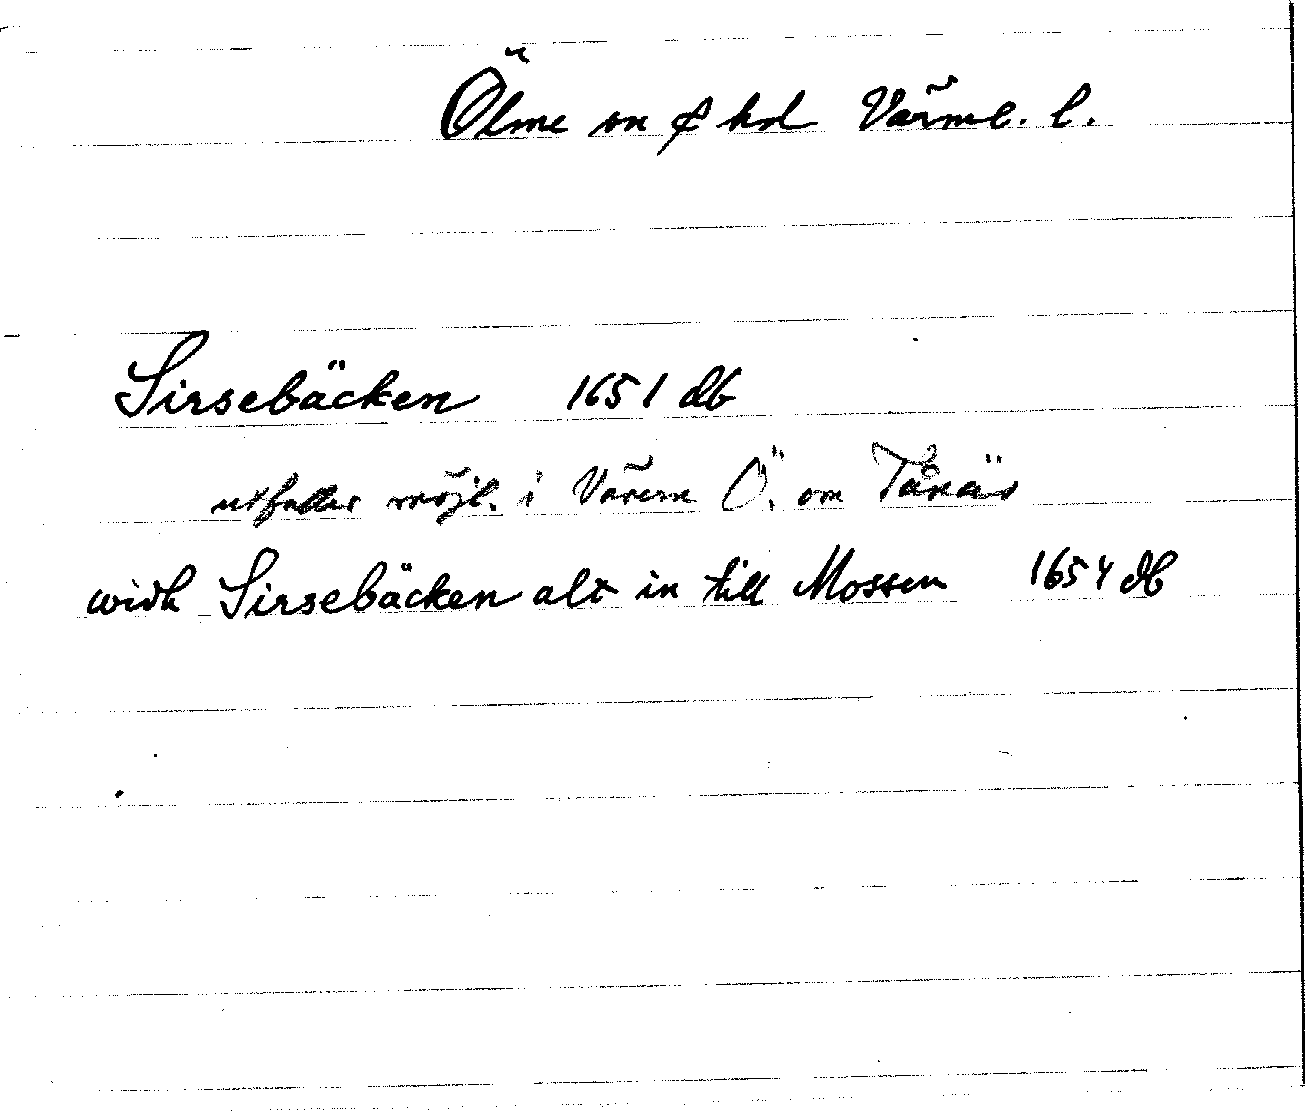 Ölme sn & hd Värml. l.
Sirsebäcken 1651 db
utfaller möjl. i Vänern Ö. om Tånäs
widh Sirsebäcken alt in till Mossen 1654 db